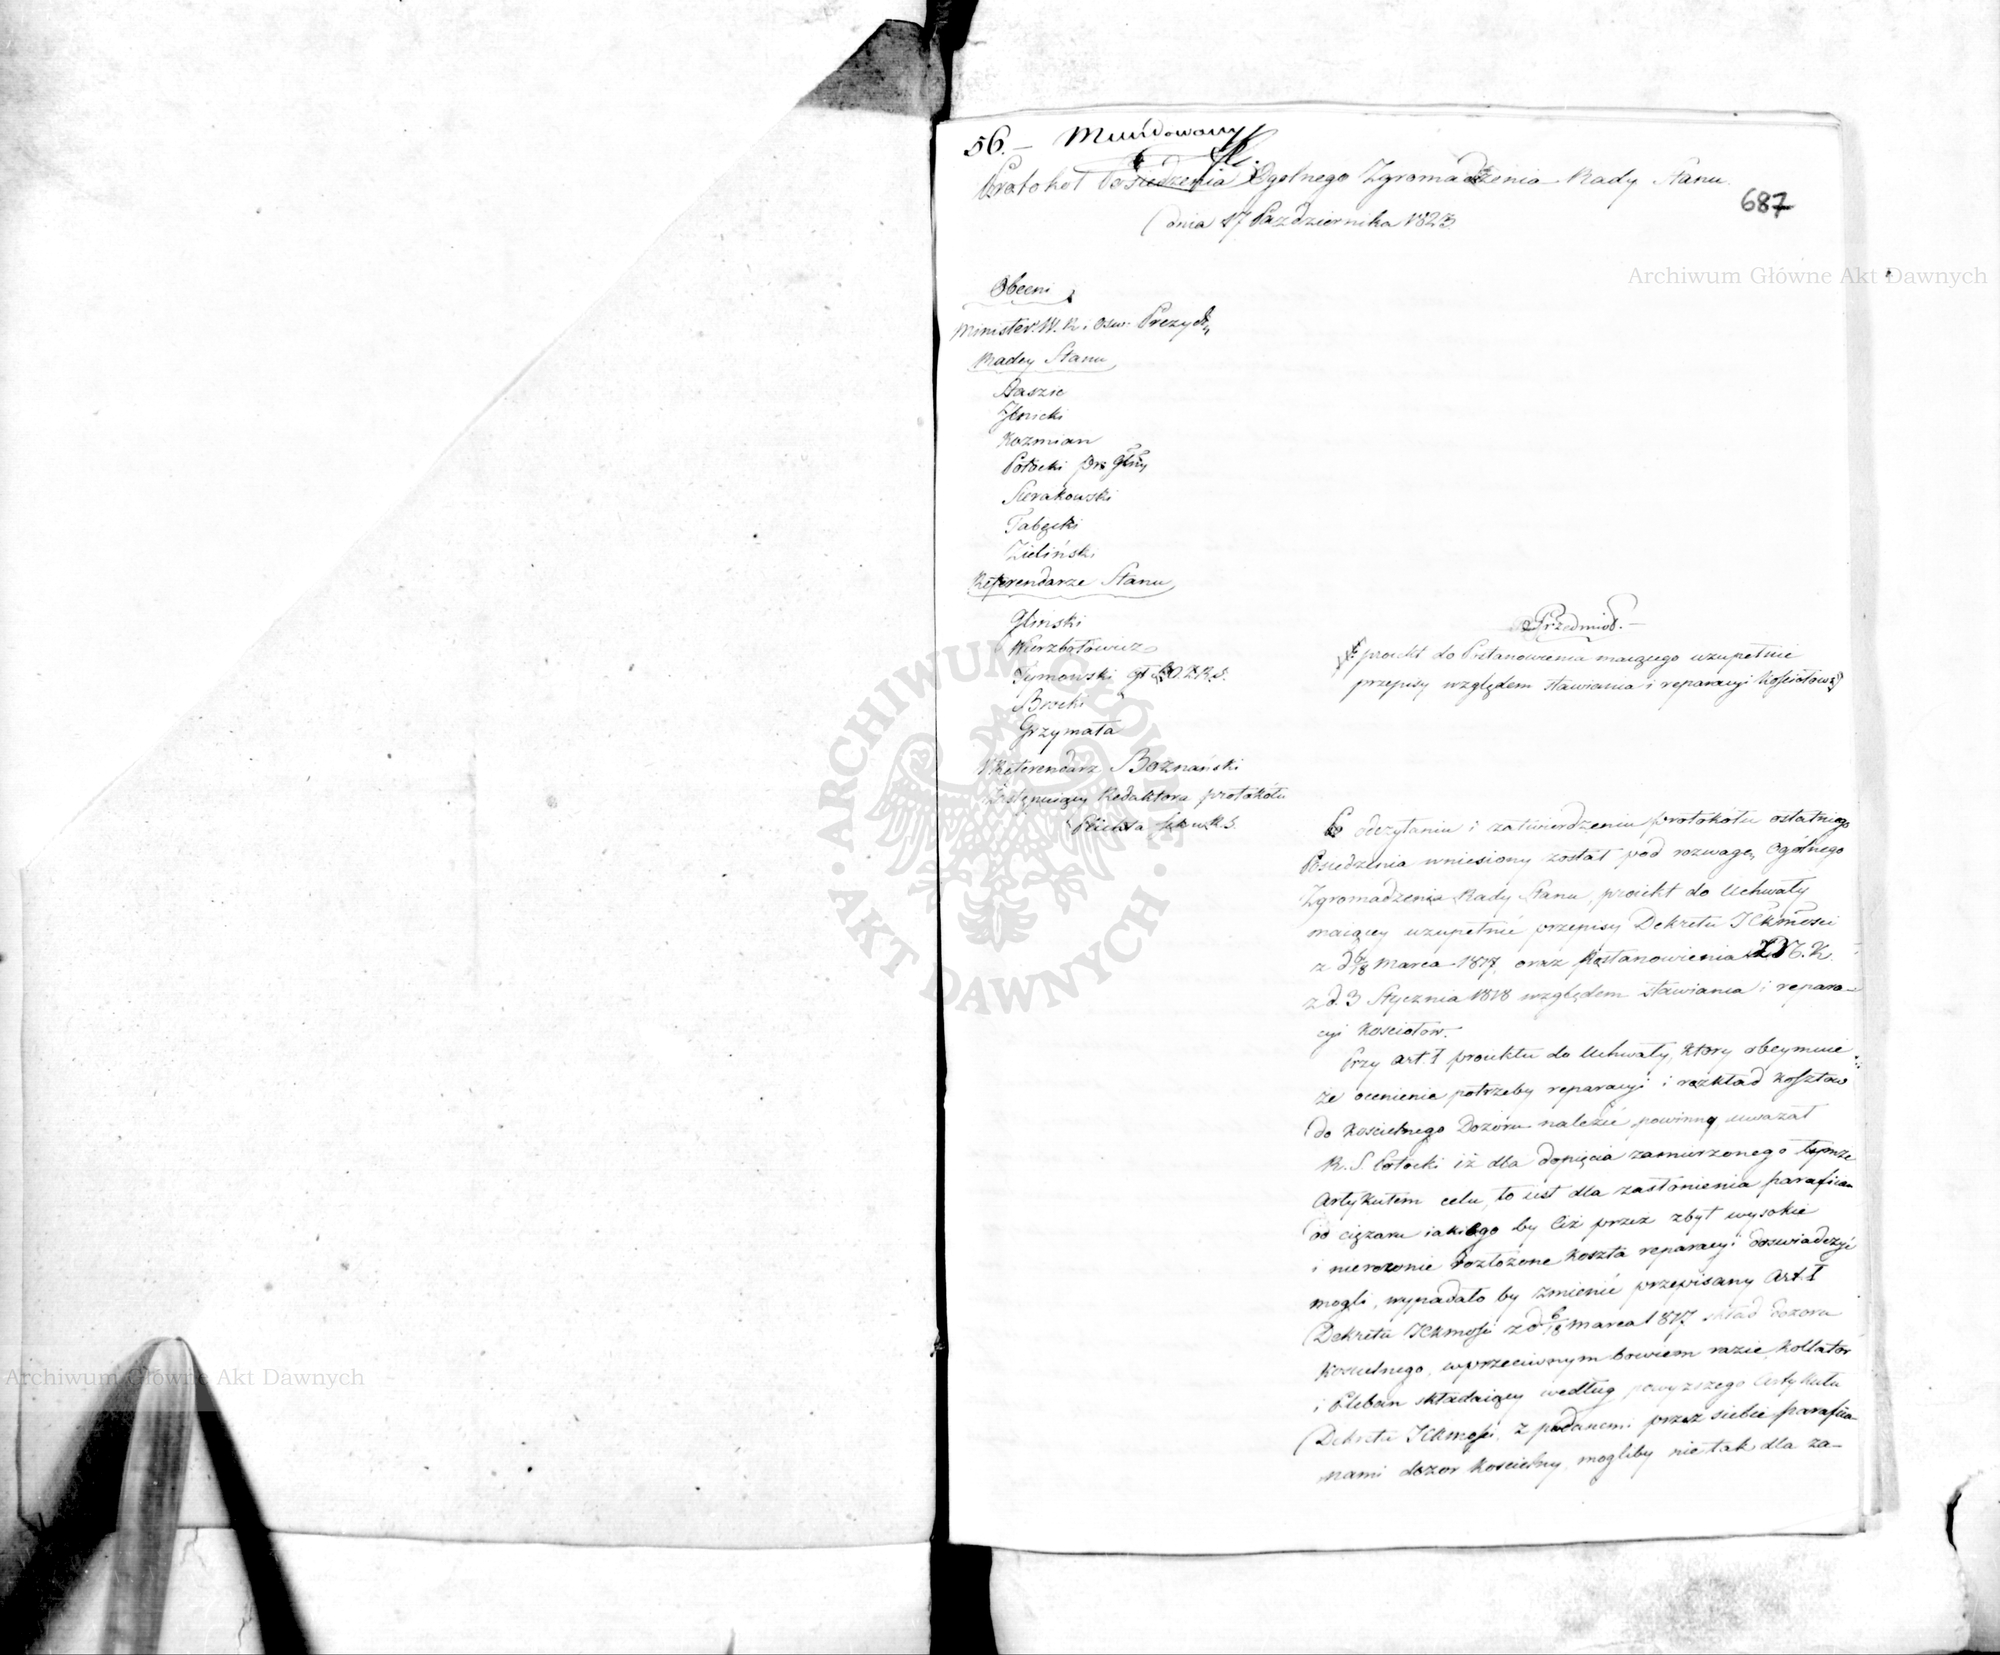 56. — Mundowany
Protokół Posiedzenia Ogolnego Zgromadzenia Rady Stanu.
687
dnia 17 Pazdziernika 1823.
Archiwum Główne Akt Dawnych
Obecni
Minister W. R. i Osw. Prezyd:
Radcy Stanu
Staszic
Kozmian
Potocki
Sierakowski
Tabęcki
Zieliński
Referendarze Stanu
Gliński
Wierzbołowicz
Tymowski
Brocki
Grzymała
Referendarz Boznański
Zastępuiący Redaktora protokółu
ARCHIWUM GŁÓWNE · AKT DAWNYCH ·
Przedmiot. —
proiekt do Postanowienia maiącego uzupełnić
przepisy względem stawiania i reparacyi Kościołow
Po odczytaniu i zatwierdzeniu protokółu ostatniego
Posiedzenia wniesiony został pod rozwagę Ogólnego
Zgromadzenia Rady Stanu, proiekt do Uchwały
maiącey uzupełnić przepisy Dekretu JCKMości
z d. 6/18 Marca 1817, oraz Postanowienia X. N. K.
z d. 3 Stycznia 1818 względem stawiania i repara-
cyi Kościołow.
Przy art. I proiektu do Uchwały, który obeymuie
że ocenienie potrzeby reparacyi i rozkład kosztow
do Kościelnego Dozoru należeć powinny uważał
R. S. Potocki iż dla dopięcia zamierzonego
Artykułem celu, to iest dla zasłonienia parafian
od ciężaru iakiego by ciż przez zbyt wysokie
i nierownie rozłożone koszta reparacyi doswiadczyć
mogli, wypadało by zmienić przepisany Art. I
Dekretu JCKMości z d 6/18 Marca 1817 skład Dozoru
Koscielnego, wprzeciwnym bowiem razie, Kollator
i Pleban składaiący według powyzszego Artykułu
Dekretu JCKMości, z podanemi przez siebie parafia-
nami dozor Koscielny, mogliby nie tak dla za-
Archiwum Główne Akt Dawnych